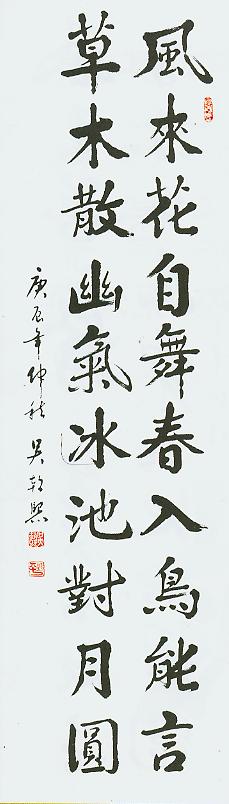 風來花自舞春入鳥能言
草木散幽氣冰池對月圓
庚辰年仲秋 吴乾熙